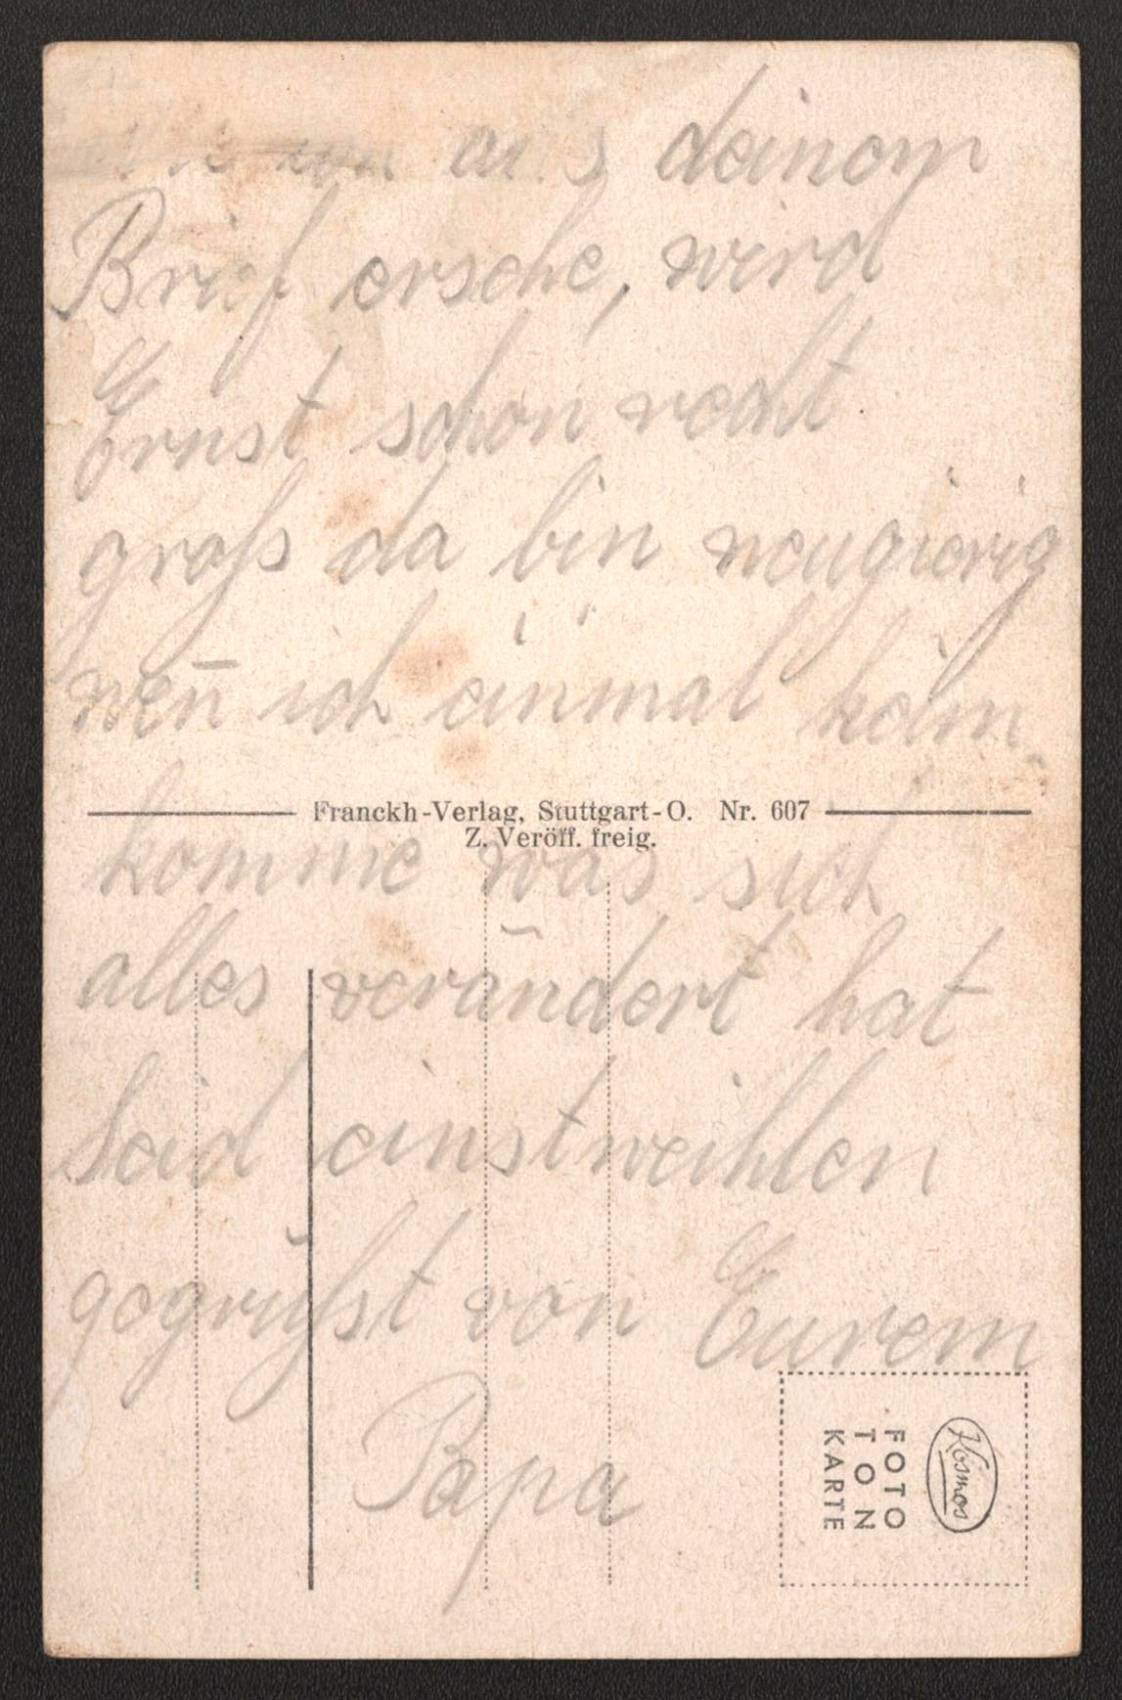 aus deinem
Brief ersehe, wird
Ernst schon recht
groß da bin neugierig
wen̄ ich einmal heim
Franckh-Verlag, Stuttgart-O. Nr. 607
Z. Veröff. freig.
komme was sich
alles verändert hat
Seid einstweihlen
gegrüßt von Eurem
Papa
Kosmos
FOTO
TON
KARTE